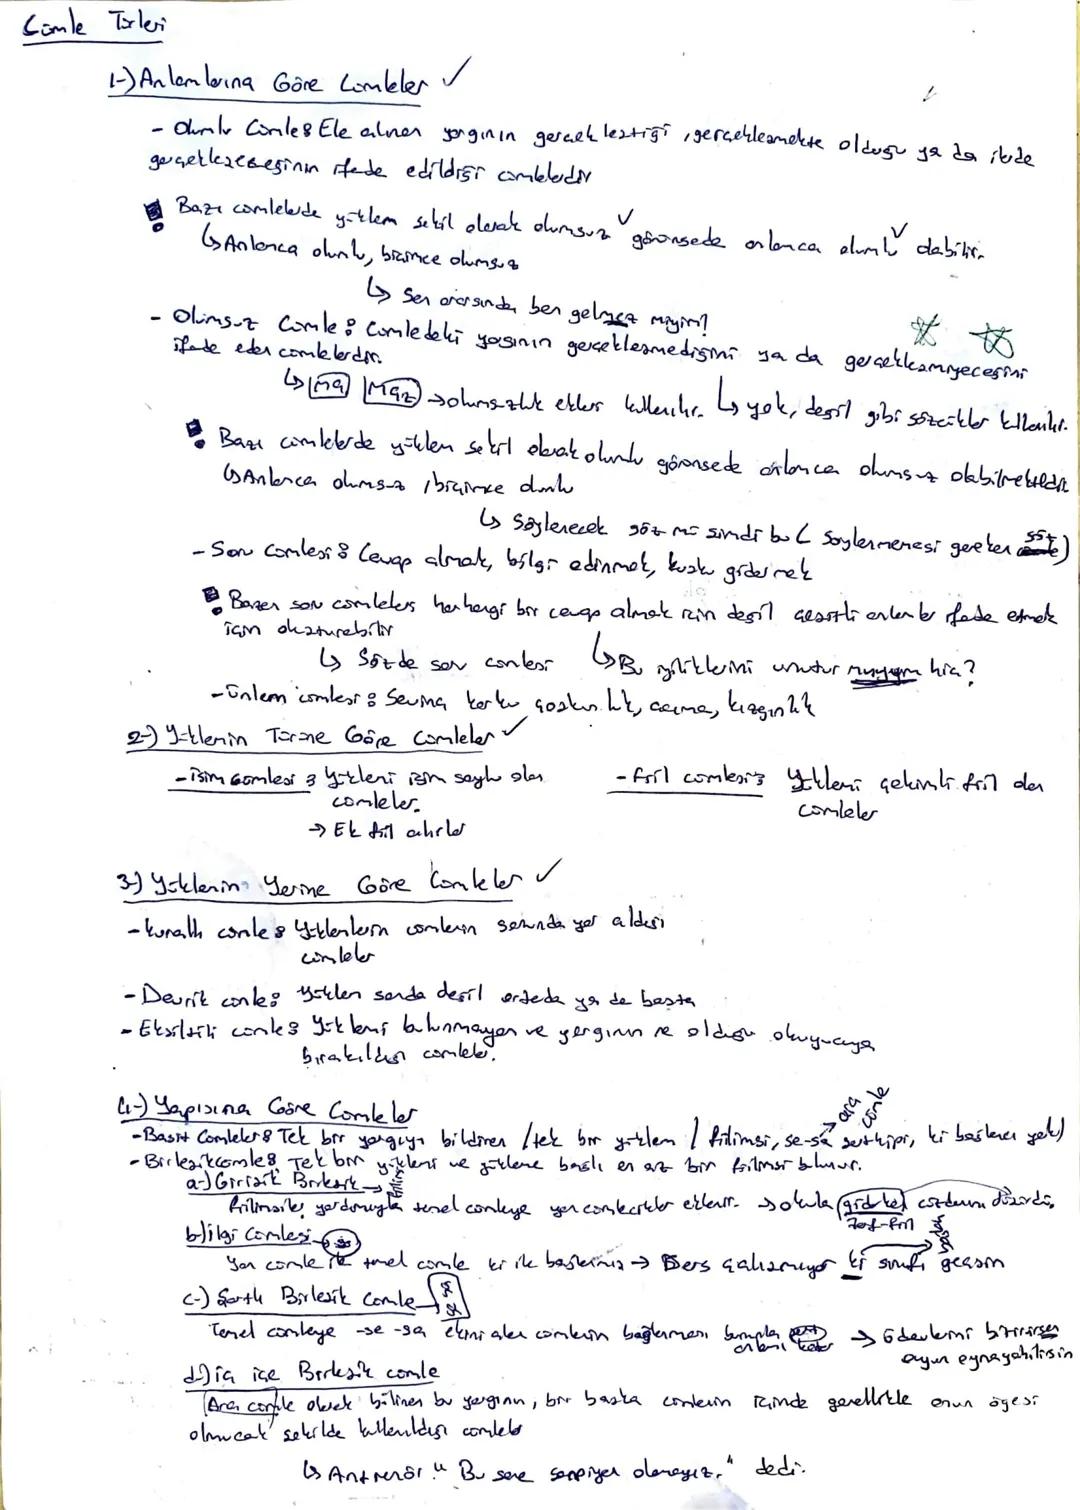 Cümle Türleri
1-) Anlamlarına Göre Cümleler ✓
- Olumlu Cümle: Ele alınan yargının gerçekleştiği, gerçekleşmekte olduğu ya da ilerde
gerçekleşeceğinin ifade edildiği cümlelerdir
! Bazı cümlelerde yüklem şekil olarak olumsuz görünsede anlamca olumlu olabilir.
↳ Anlamca olumlu, biçimce olumsuz
↳ Sen ararsında ben gelmez miyim?
- Olumsuz Cümle: Cümledeki yargının gerçekleşmediğini ya da gerçekleşmiyeceğini
ifade eden cümlelerdir.
↳ Ma Maz → olumsuzluk ekleri kullanılır. ↳ yok, değil gibi sözcükler kullanılır.
! Bazı cümlelerde yüklem şekil olarak olumlu görünsede anlamca olumsuz olabilmektedir
↳ Anlamca olumsuz, biçimce olumlu
↳ Söylenecek söz mü şimdi bu ( Söylenmemesi gereken söz )
- Soru Cümlesi: Cevap almak, bilgi edinmek, kuşku gidermek
! Bazen soru cümleleri herhangi bir cevap almak için değil çeşitli anlamlar ifade etmek
için oluşturabilir
↳ Sözde soru cümlesi ↳ Bu iyiliklerini unutur muyum hiç?
- Ünlem cümlesi: Sevinç korku coşkunluk, acıma, kızgınlık
2-) Yüklemin Türüne Göre Cümleler ✓
- İsim cümlesi: Yüklemi isim soylu olan - Fiil cümlesi: Yüklemi çekimli fiil olan
cümleler. cümleler
→ Ek fiil alırlar
3-) Yüklemin Yerine Göre Cümleler ✓
- Kurallı cümle: Yüklemlerin cümlenin sonunda yer aldığı
cümleler
- Devrik cümle: Yüklem sonda değil ortada ya da başta
- Eksiltili cümle: Yüklemi bulunmayan ve yargının ne olduğu okuyucuya
bırakıldığı cümleler.
4-) Yapısına Göre Cümleler
→ ara cümle
- Basit Cümleler: Tek bir yargıyı bildiren / tek bir yüklem / fiilimsi, se-sa şart kipi, ki bağlacı yok)
- Birleşik cümle: Tek bir yüklemi ve yükleme bağlı en az bir fiilimsi bulunur.
a-) Girişik Birleşik → fiilimsi
fiilimsiler yardımıyla temel cümleye yan cümlecikler eklenir. → okula giderken cüzdanını düşürdü.
Zarf-fiil
b-) ilgi Cümlesi
Yan cümle ile temel cümle ki ile bağlanır → Ders çalışmıyor ki sınıfı geçsin
c-) Şartlı Birleşik Cümle se sa
Temel cümleye -se -sa ekini alan cümlenin bağlanması şart anlamı katar → Ödevlerini bitirirsen
oyun oynayabilirsin
d-) iç içe Birleşik cümle
Ara cümle olarak bilinen bu yargının, bir başka cümlenin içinde genellikle onun ögesi
olmucak şekilde kullanıldığı cümleler
↳ Antrenör " Bu sene şampiyon olacağız." dedi.